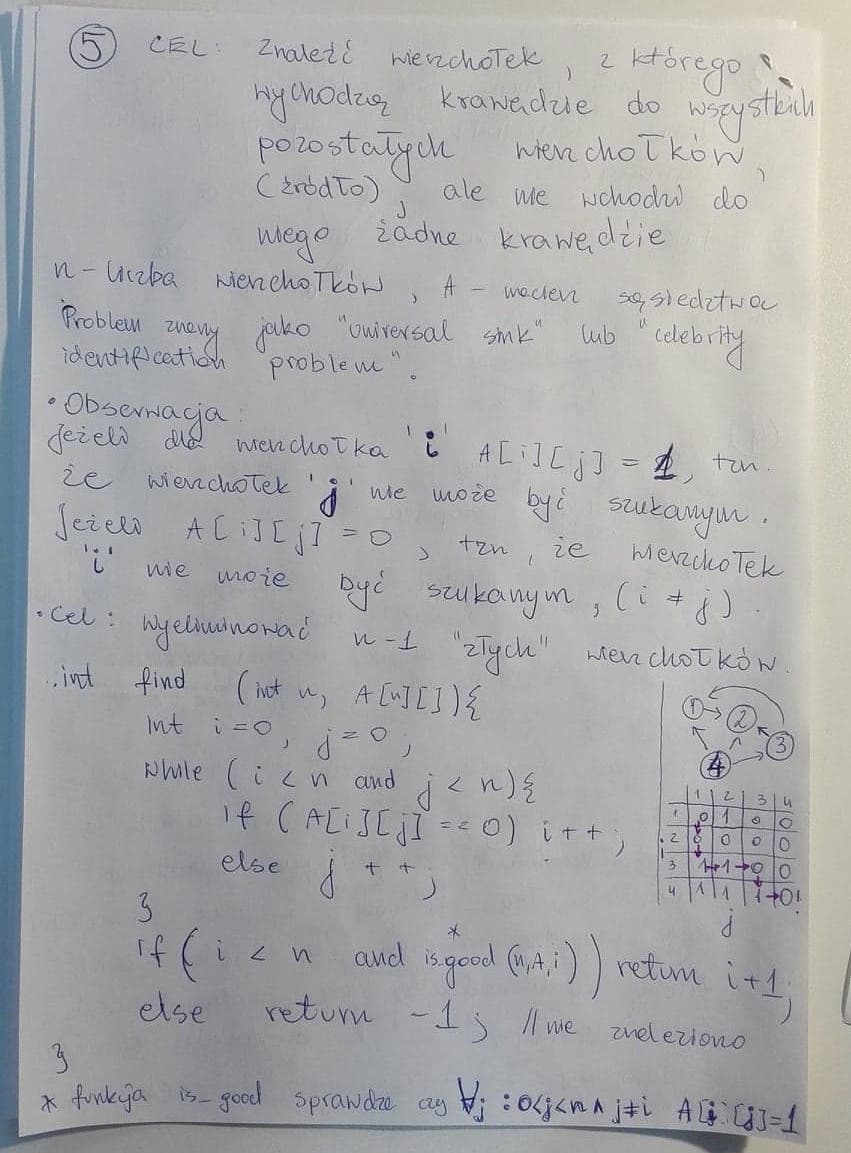 5 CEL: Znaleźć wierzchołek, z którego
wychodzą krawędzie do wszystkich
pozostałych wierzchołków,
(źródło), ale nie wchodzi do
niego żadne krawędzie
n - liczba wierzchołków, A - macierz sąsiedztwa
Problem znany jako "universal sink" lub "celebrity
identification problem".
• Obserwacja:
Jeżeli dla wierzchołka 'i' A[i][j] = 1, tzn.
że wierzchołek 'j' nie może być szukanym.
Jeżeli A[i][j] = 0, tzn, że wierzchołek
'i' nie może być szukanym, (i ≠ j).
• Cel: wyeliminować n-1 "złych" wierzchołków.
int find (int n, A[n][]){
int i=0, j=0;
while (i < n and j < n){
if (A[i][j] == 0) i++;
else j++;
}
if (i < n and is_good* (n,A,i)) return i+1;
else return -1; // nie znaleziono
}
1 2 3 4
1 2 3 4
1 0 1 0 0
2 0 0 0 0
3 1 1 0 0
4 1 1 1 0!
j
* funkcja is_good sprawdza czy ∀j : 0<j<n ∧ j≠i A[i][j]=1